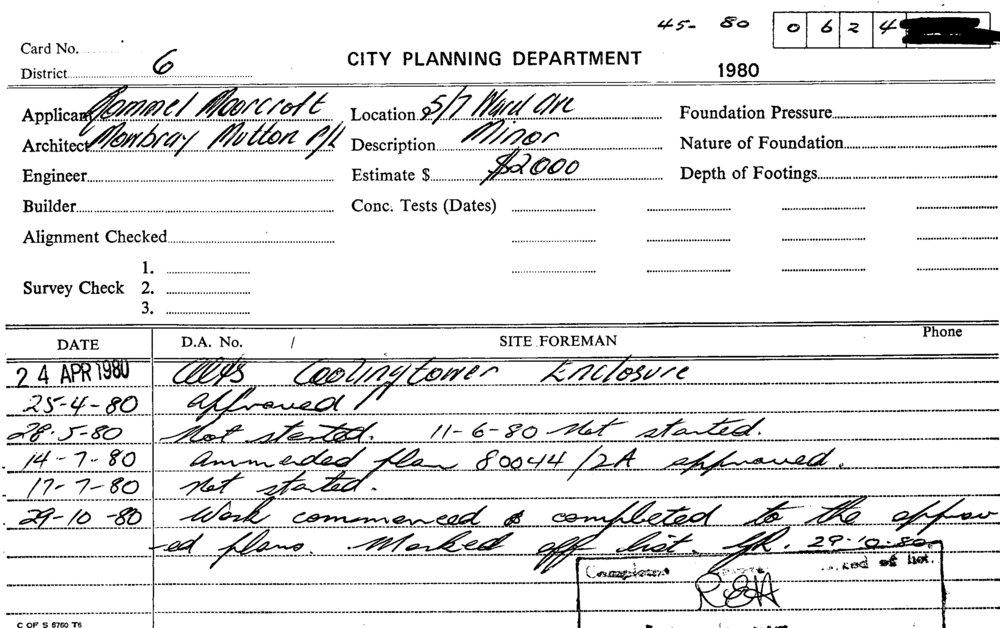 45- 80 0624
Card No.
District 6
CITY PLANNING DEPARTMENT
1980
Applicant Rommel Moorcroft
Location 5/7 Ward Ave
Foundation Pressure
Architect Mowbray Mutton P/L
Description Minor
Nature of Foundation
Engineer
Estimate $ $2000
Depth of Footings
Builder
Conc. Tests (Dates)
Alignment Checked
Survey Check
1.
2.
3.
DATE D.A. No. / SITE FOREMAN Phone
24 APR 1980 Coolingtower Enclosure
25-4-80 approved
28-5-80 Not started. 11-6-80 Not started.
14-7-80 ammended plan 80044/2A approved.
17-7-80 Not started.
29-10-80 Work commenced & completed to the approv
-ed plans. Marked off list. 29-10-80
of list.
REH
C OF S 6760 T6